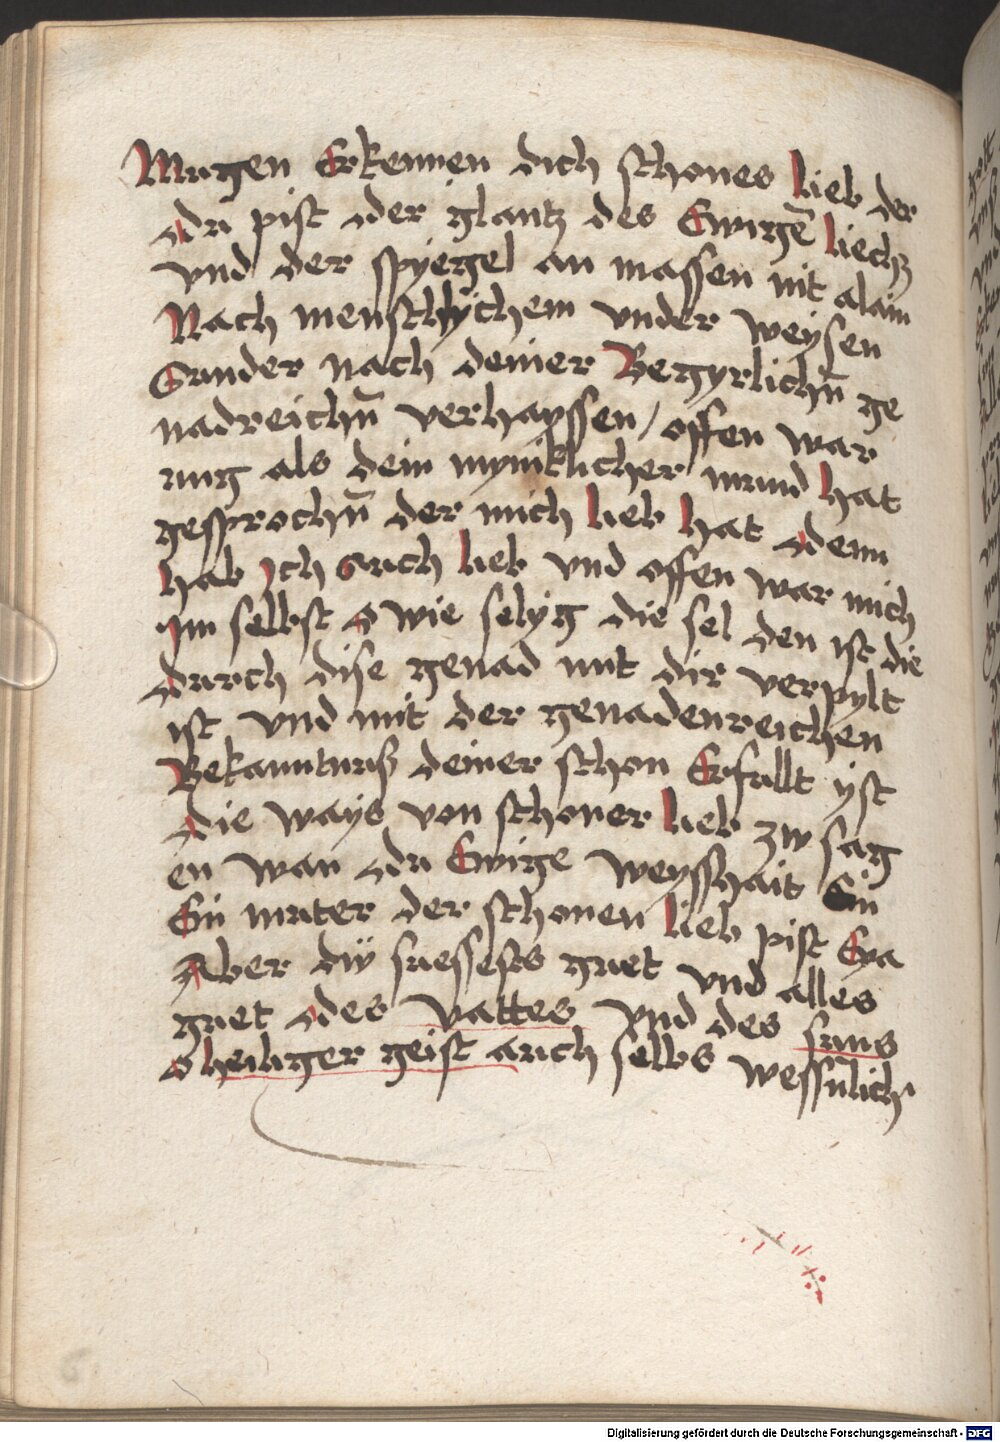 Mugen Erkennen dich schones lieb der
du pist der glantz des Ewigē liechz
vnd der spyegel an massen nit alain
Nach menschlychem vnder weysen
Sunder nach deiner Begyrlichn̄ ge
nadreichn̄ verhayssen / offen war
ung als dein myniklicher mund hat
gesprochn̄ der mich lieb hat denn
hab Ich auch lieb vnd offen war mich
Im selbst O wie selyg die sel den ist die
durch dise genad mit dir verpylt
ist vnd mit der genadenreichen
Bekanntnuß deiner schon Erfullt yst
die ways von schoner lieb zw sag
en wan du Ewige weysshait Ein
Ein muter der schonen lieb pist Eya
Aber dÿ suessests guet vnd alles
guet des vattes vnd des suns
O heiliger geist auch selbs wessnlich
Digitalisierung gefördert durch die Deutsche Forschungsgemeinschaft - DFG